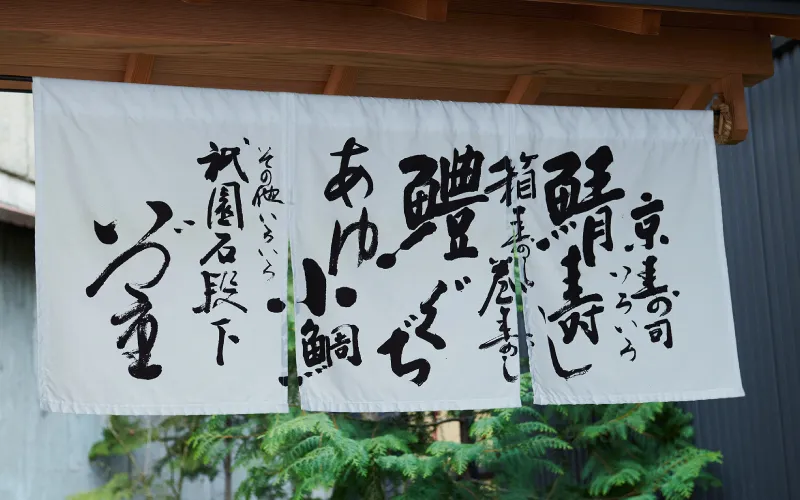 京寿司
いろいろ
鯖寿し
箱寿し巻寿し
鱧ぐぢ
あゆ小鯛
その他いろいろ
祇園石段下
いづ重